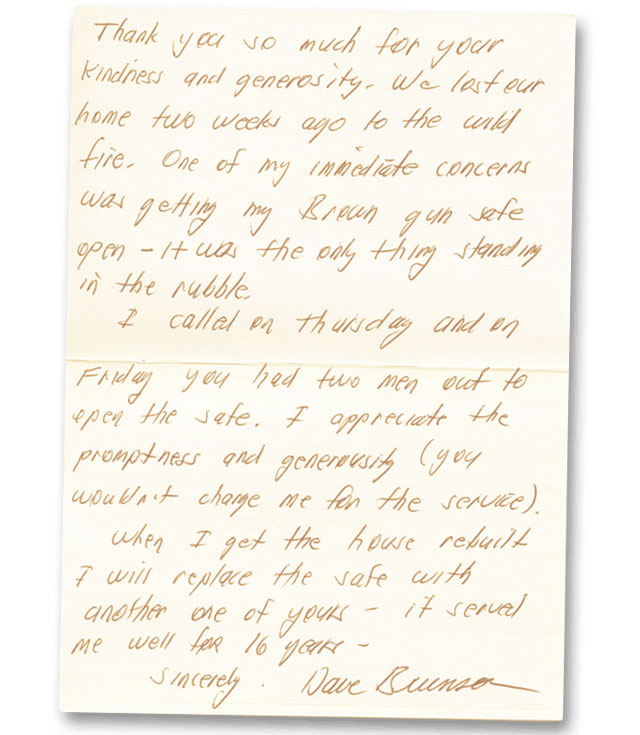 Thank you so much for your
kindness and generosity. We lost our
home two weeks ago to the wild
fire. One of my immediate concerns
was getting my Brown gun safe
open - it was the only thing standing
in the rubble.
I called on thursday and on
Friday you had two men out to
open the safe. I appreciate the
promptness and generousity (you
wouldn't charge me for the service).
When I get the house rebuilt
I will replace the safe with
another one of yours - it served
me well for 16 years -
Sincerely. Dave